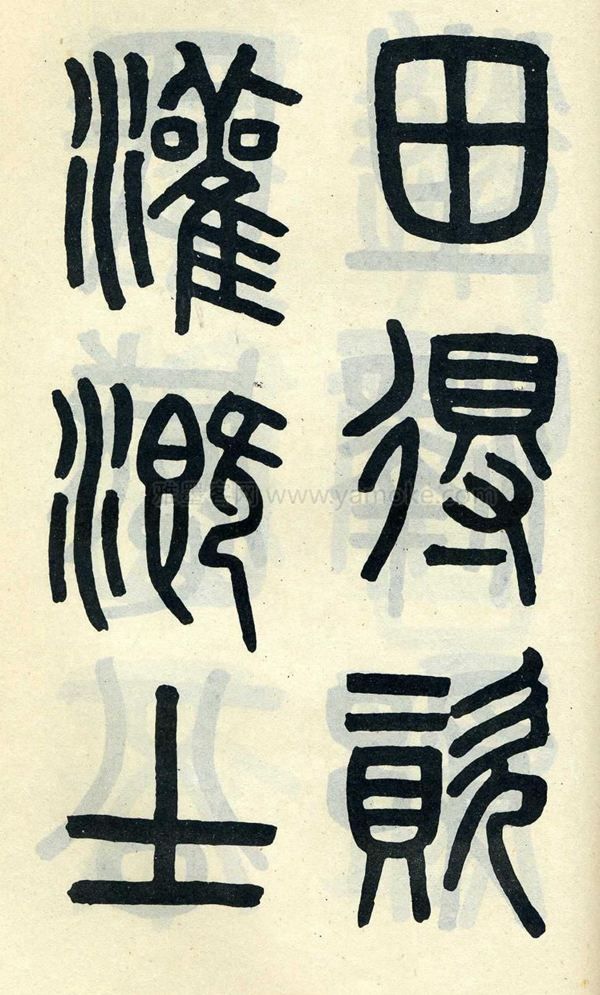 田得資
灌溉士
雅墨客网 www.yamoke.com